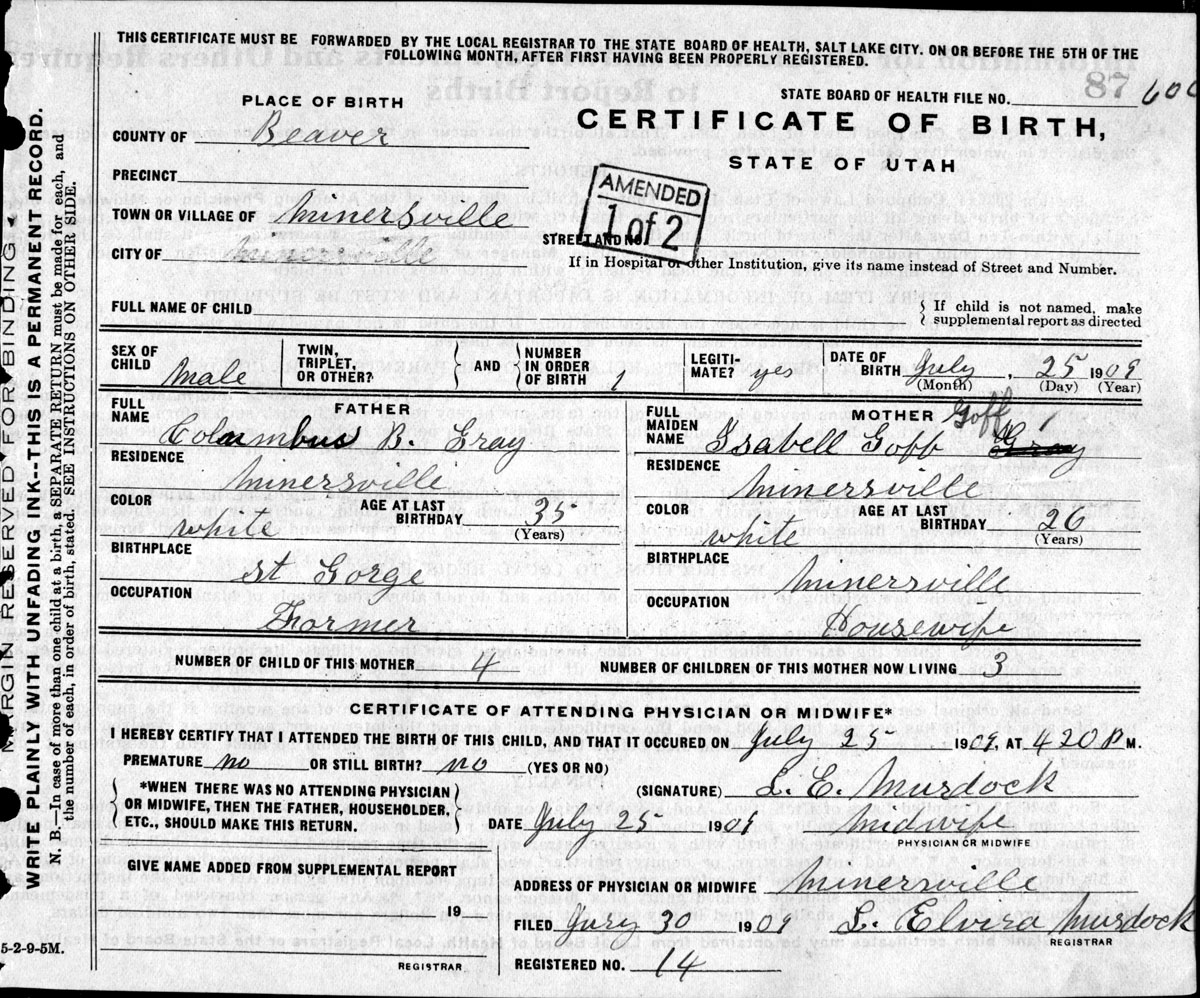 THIS CERTIFICATE MUST BE FORWARDED BY THE LOCAL REGISTRAR TO THE STATE BOARD OF HEALTH, SALT LAKE CITY. ON OR BEFORE THE 5TH OF THE
FOLLOWING MONTH, AFTER FIRST HAVING BEEN PROPERLY REGISTERED.
STATE BOARD OF HEALTH FILE NO. 600
87
PLACE OF BIRTH
CERTIFICATE OF BIRTH,
STATE OF UTAH
COUNTY OF Beaver
PRECINCT
AMENDED
1 of 2
TOWN OR VILLAGE OF Minersville
STREET AND NO.
CITY OF Minersville
If in Hospital or other Institution, give its name instead of Street and Number.
FULL NAME OF CHILD
If child is not named, make
supplemental report as directed
SEX OF CHILD Male
TWIN, TRIPLET, OR OTHER?
AND
NUMBER IN ORDER OF BIRTH 1
LEGITI-MATE? yes
DATE OF BIRTH July, 25 1909
(Month) (Day) (Year)
FATHER
FULL NAME Columbus B. Gray
RESIDENCE
Minersville
COLOR white
AGE AT LAST BIRTHDAY 35
(Years)
BIRTHPLACE
St Gorge
OCCUPATION
Farmer
MOTHER
FULL MAIDEN NAME Isabell Goff Gray Goff
RESIDENCE
Minersville
COLOR white
AGE AT LAST BIRTHDAY 26
(Years)
BIRTHPLACE
Minersville
OCCUPATION
Housewife
NUMBER OF CHILD OF THIS MOTHER 4
NUMBER OF CHILDREN OF THIS MOTHER NOW LIVING 3
CERTIFICATE OF ATTENDING PHYSICIAN OR MIDWIFE*
I HEREBY CERTIFY THAT I ATTENDED THE BIRTH OF THIS CHILD, AND THAT IT OCCURED ON July 25 1909, AT 4 20 P M.
PREMATURE no OR STILL BIRTH? no (YES OR NO)
*WHEN THERE WAS NO ATTENDING PHYSICIAN
OR MIDWIFE, THEN THE FATHER, HOUSEHOLDER,
ETC., SHOULD MAKE THIS RETURN.
(SIGNATURE) L. E. Murdock
DATE July 25 1909 Midwife
PHYSICIAN OR MIDWIFE
GIVE NAME ADDED FROM SUPPLEMENTAL REPORT
19
REGISTRAR
ADDRESS OF PHYSICIAN OR MIDWIFE Minersville
FILED July 30 1909 L. Elvira Murdock
REGISTRAR
REGISTERED NO. 14
MARGIN RESERVED FOR BINDING
WRITE PLAINLY WITH UNFADING INK--THIS IS A PERMANENT RECORD.
N. B.—In case of more than one child at a birth, SEPARATE RETURN must be made for each, and
the number of each, in order of birth, stated. SEE INSTRUCTIONS ON OTHER SIDE.
5-2-9-5M.